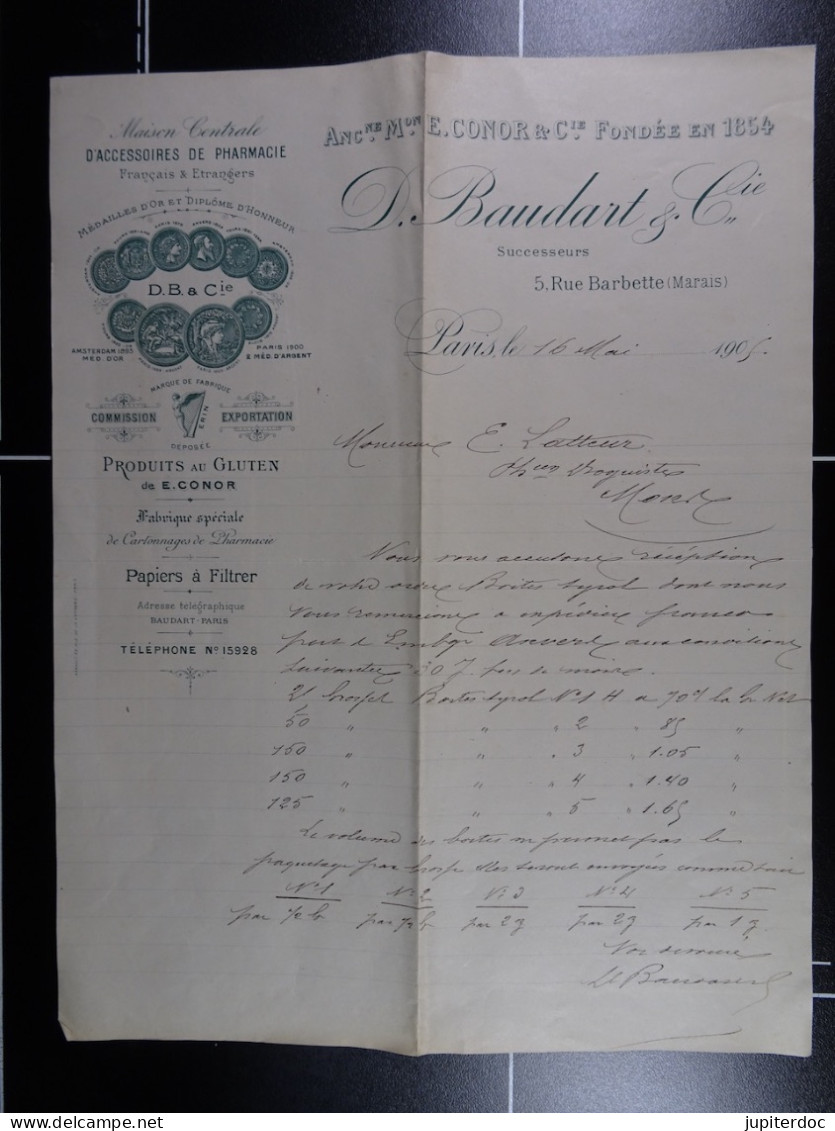 Maison Centrale
D'ACCESSOIRES DE PHARMACIE
Français & Etrangers
MÉDAILLES D'OR ET DIPLÔME D'HONNEUR
D.B. & Cie
AMSTERDAM 1895
MED. D'OR
PARIS 1900
2 MÉD. D'ARGENT
MARQUE DE FABRIQUE
COMMISSION
ERIN
EXPORTATION
DÉPOSÉE
PRODUITS AU GLUTEN
de E. CONOR
Fabrique spéciale
de Cartonnages de Pharmacie
Papiers à Filtrer
Adresse télégraphique
BAUDART-PARIS
TÉLÉPHONE No 15928
ANCNE MON E. CONOR & CIE FONDÉE EN 1854
D. Baudart & Cie
Successeurs
5, Rue Barbette (Marais)
Paris, le 16 Mai 1905
Monsieur E. Latteur
Phien Droguiste
Mons
Nous vous accusons réception
de votre ordre Boites tyrol dont nous
vous remercions à expédier franco
port & Embge Anvers aux conditions
suivantes 30 J. fin de mois.
Boites tyrol No 1 H a 70c la Gr Net
50 " " " 2 " 85 "
150 " " " 3 " 1.05 "
150 " " " 4 " 1.40 "
125 " " " 5 " 1.65 "
Le volume des boites ne permet pas le
paquetage par Grosse elles seront envoyées comme suit
No 1 No 2 No 3 No 4 No 5
par 1/2 G par 1/2 G par 2 z par 2 z par 1 z
Nos
D Baudart
jupiterdoc